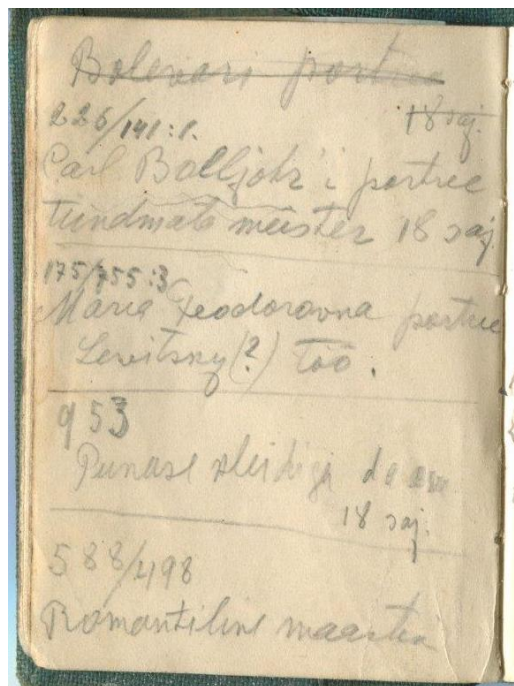 Bolevari portree
18 saj.
226/141:1.
Carl Balljohr'i portree
tundmata meister 18 saj.
175/755:3
Maria Feodorovna portree
Levitsky(?) töö.
953
Punase kleidiga daam
18 saj.
588/498
Romantiline maastik